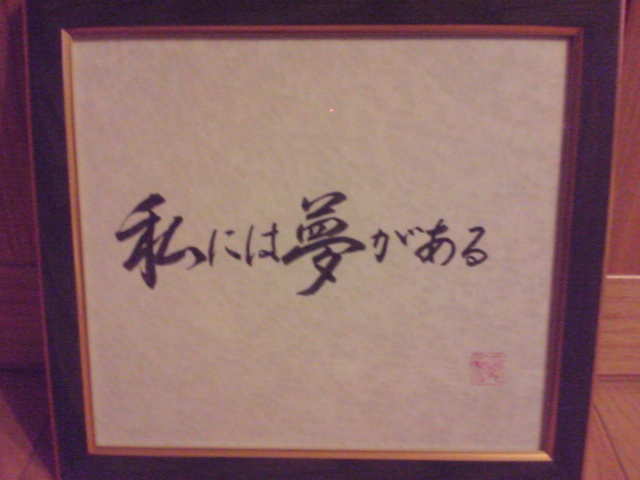 私には夢がある